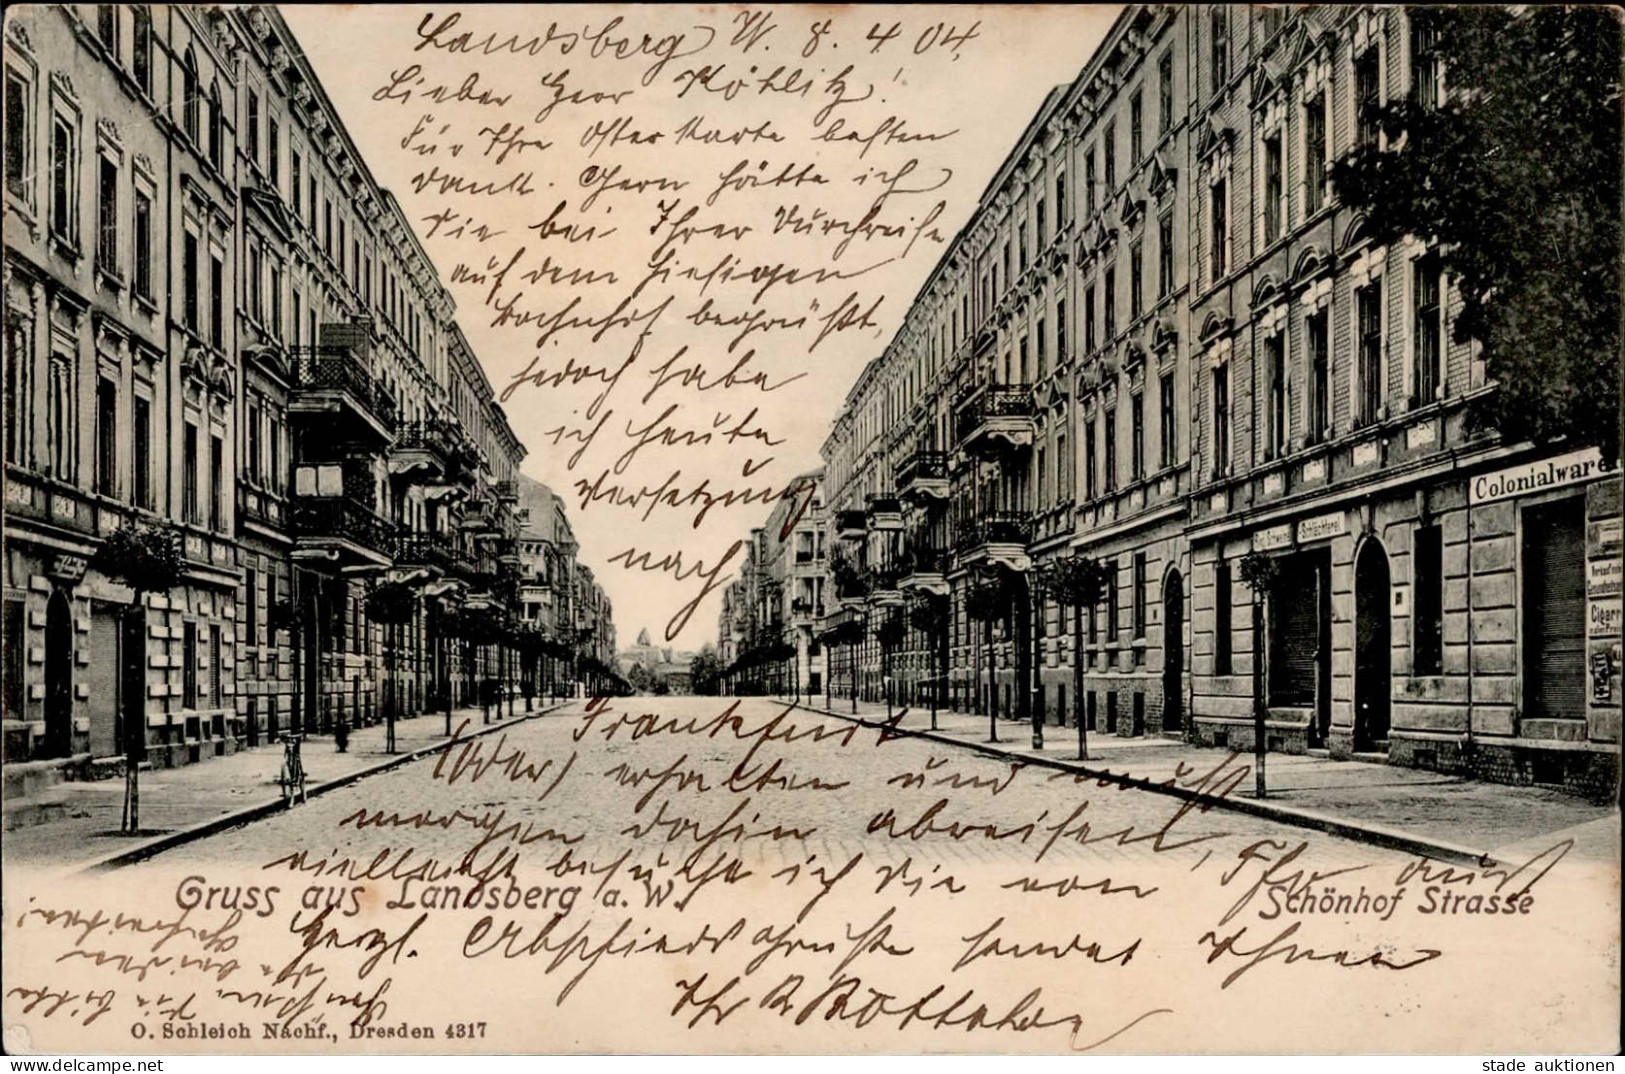 Landsberg W. 8. 4 04.
Lieber Herr !
Für Ihre Osterkarte besten
Dank. Gern hätte ich
Sie bei Ihrer Durchreise
auf dem hiesigen
Bahnhof begrüßt,
jedoch habe
ich heute
Versetzung
nach
Frankfurt
(Oder) erhalten und muß
morgen dahin abreisen,
vielleicht besuche ich Sie von aus
Herzl. Abschiedsgrüße sendet Ihnen
Ihr
Grüßen Sie bitte
die beiden
Colonialwaren
Schlächterei
Gruss aus Landsberg a. W.
Schönhof Strasse
O. Schleich Nachf., Dresden 4317
stade auktionen